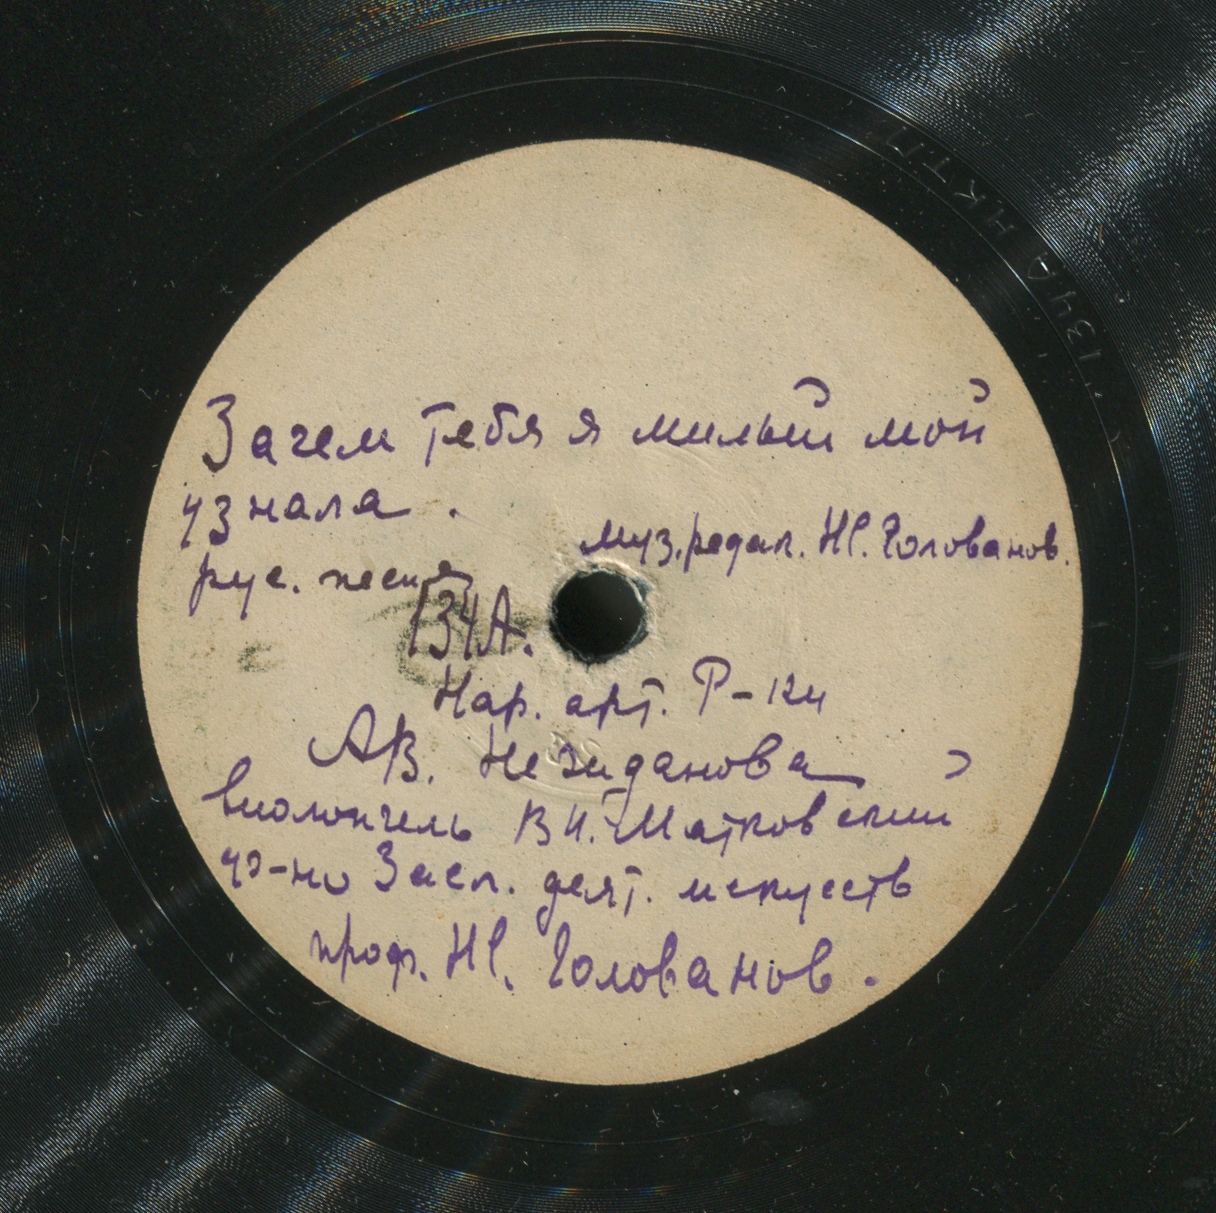 Зачем тебя я милый мой
узнала.
муз. редак. Н.С. Голованов.
рус. песня
134А.
Нар. арт. Р-ки
А.В. Нежданова
виолончель В.И. Матковский
Засл. деят. искусств
проф. Н.С. Голованов.
134 А НКТП